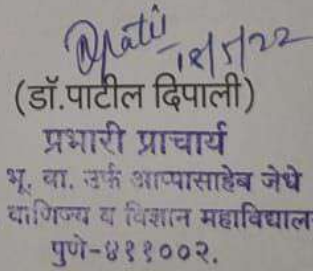 Dpatil
18/5/22
(डॉ.पाटील दिपाली)
प्रभारी प्राचार्य
भू. वा. उर्फ आप्पासाहेब जेधे
वाणिज्य व विज्ञान महाविद्याल
पुणे-४११००२.